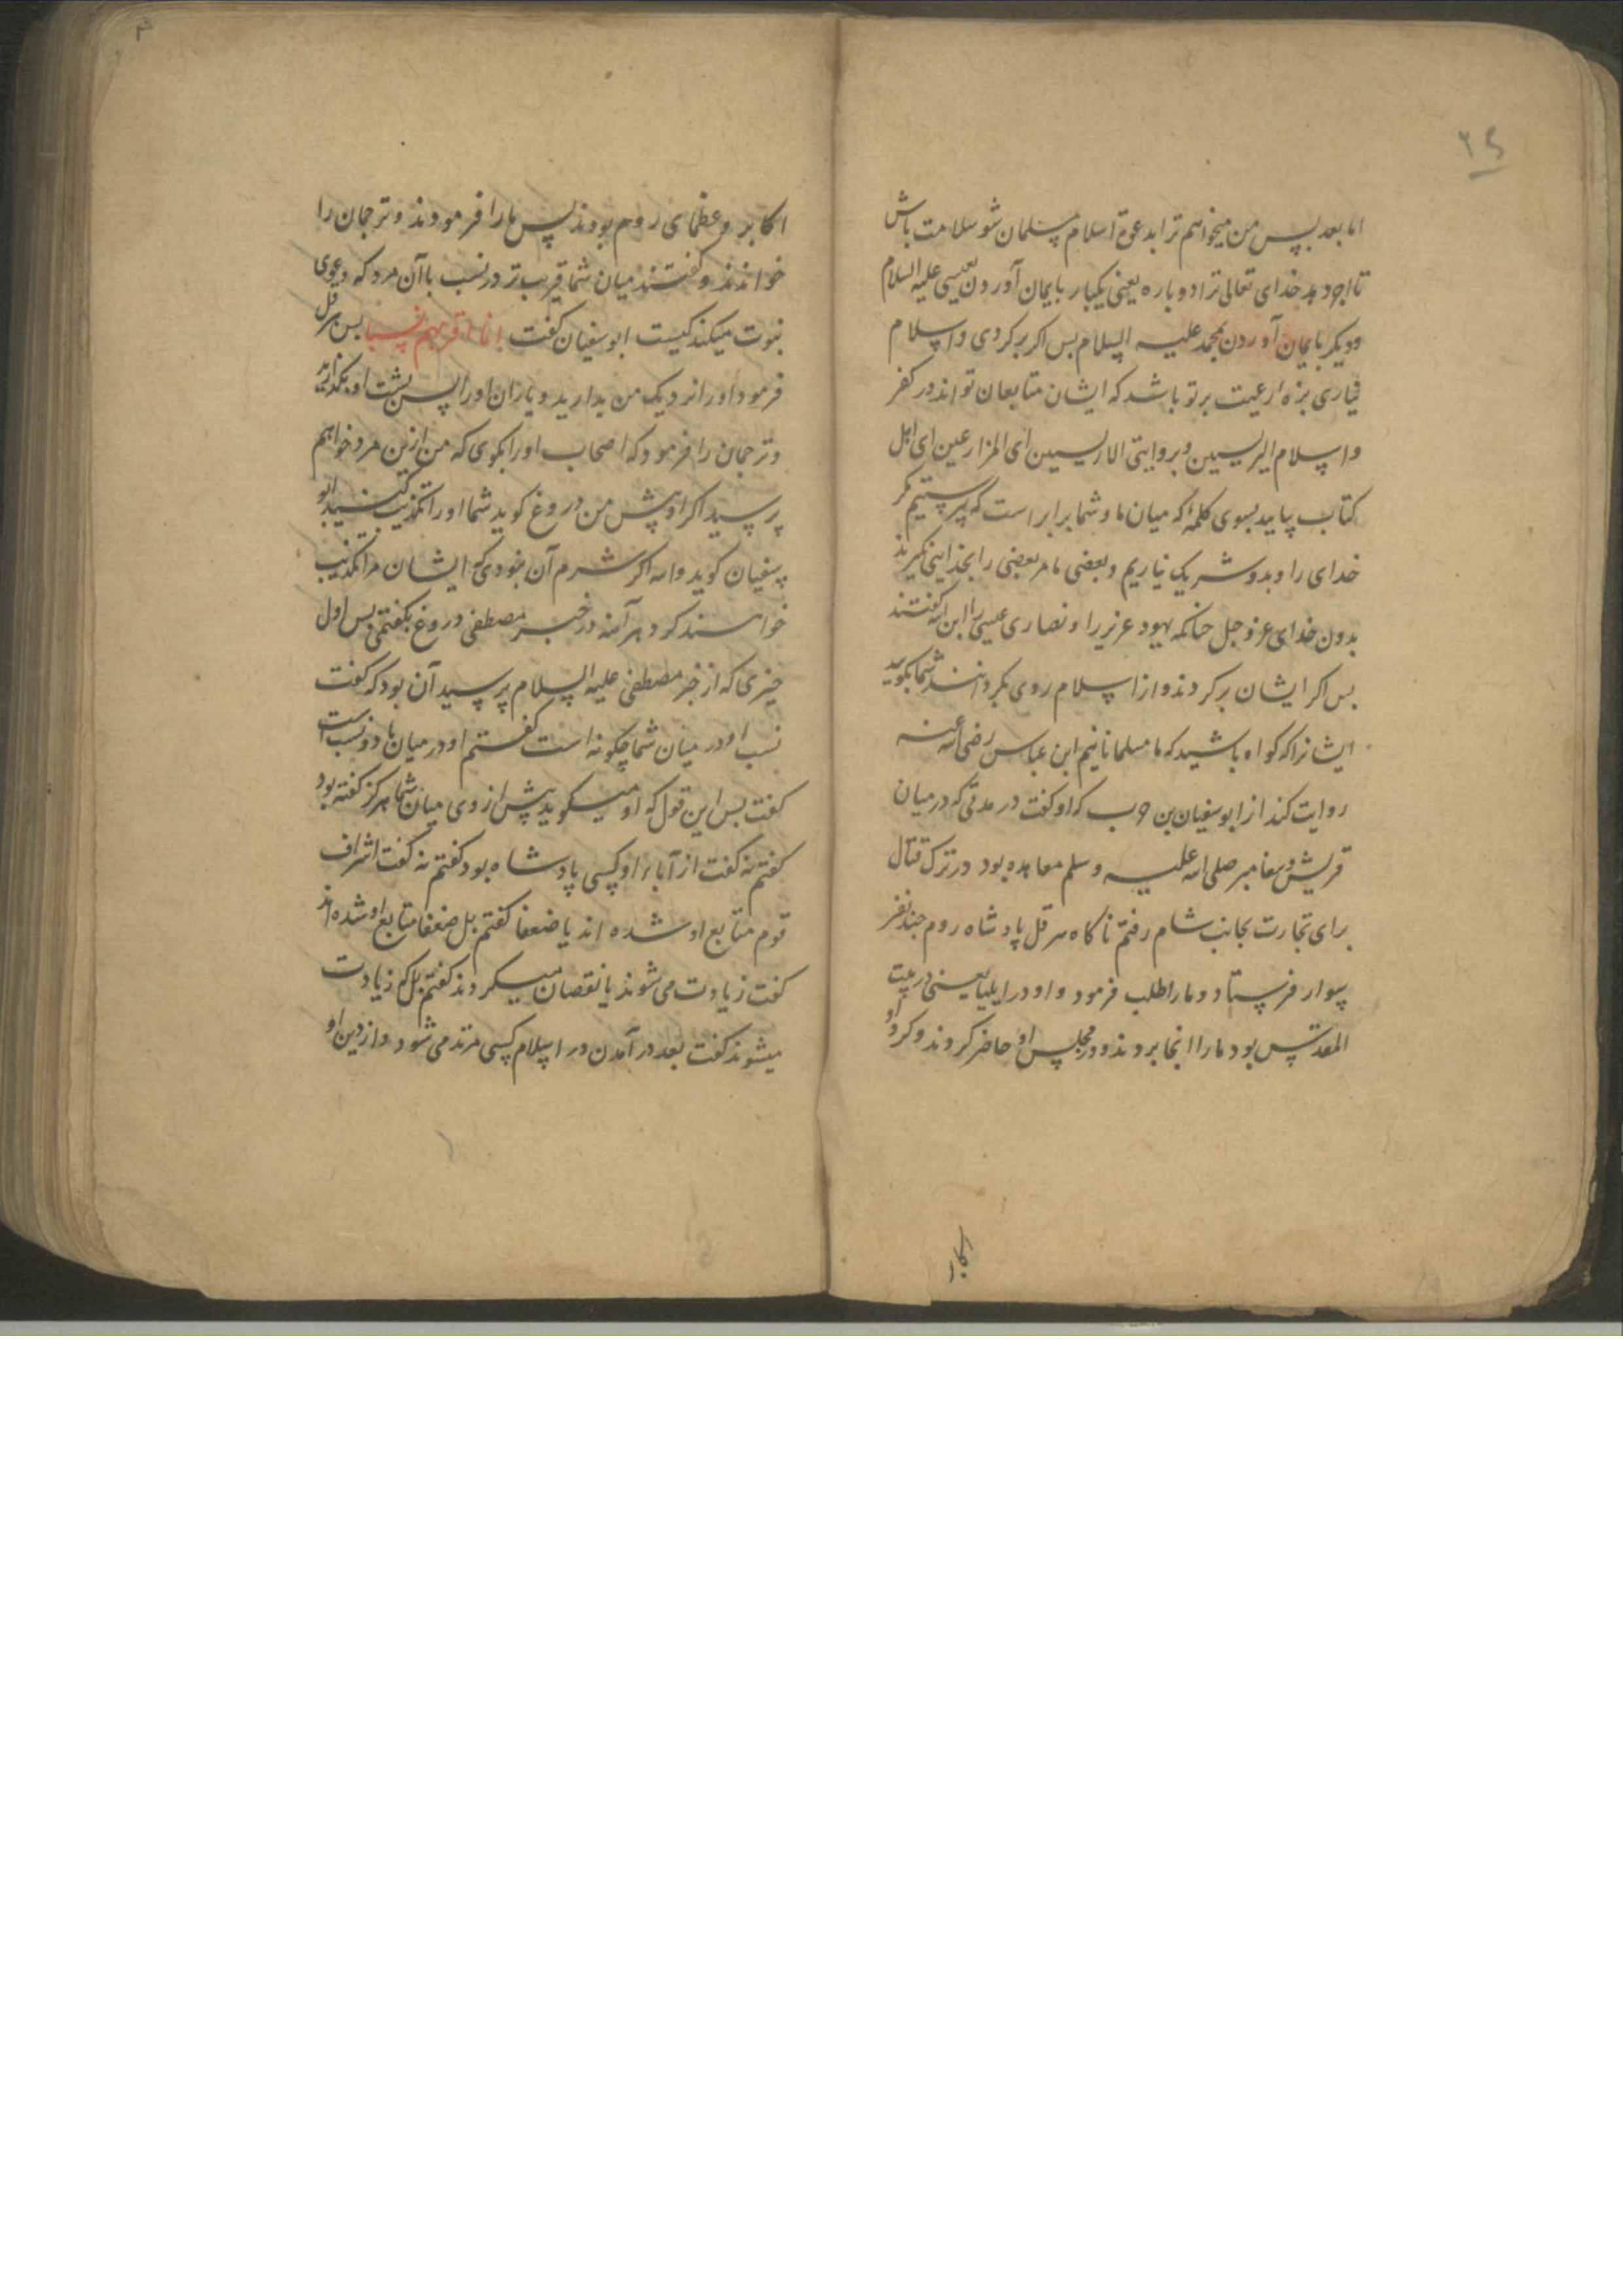 ۲۵
اما بعد پس من میخواهم ترا بدعوة اسلام مسلمان شو سلامت باش
تا اجر دهد خدای تعالی ترا دوباره یعنی یکبار بایمان آوردن بعیسی علیه السلام
و دیکر بایمان آوردن بمحمد علیه السلام بس اکر برکردی و اسلام
نیاری بزه رعیت بر تو باشد که ایشان متابعان تو اند در کفر
و اسلام الیریسین و بروایتی الاریسین ای المزارعین ای اهل
کتاب بیایید بسوی کلمهٔ که میان ما و شما برابر است که نپرستیم مکر
خدای را و بدو شریک نیاریم و بعضی ما مر بعضی را بخدایی نکیرند
بدون خدای عز و جل چنانکه یهود عزیر را و نصاری عیسی را ابن الله کفتند
بس اکر ایشان برکردند و از اسلام روی بکردانند شما بکویید
ایشانرا که کواه باشید که ما مسلمانانیم ابن عباس رضی الله عنه
روایت کند از ابو سفیان بن حرب که او کفت در مدتی که در میان
قریش و پیغامبر صلی الله علیه و سلم معاهده بود در ترک قتال
برای تجارت بجانب شام رفتم ناکاه هرقل پادشاه روم چند نفر
سوار فرستاد و ما را طلب فرمود و او در ایلیا یعنی در بیت
المقدس بود ما را آنجا بردند و در مجلس او حاضر کردند و کرد او
اکابر
اکابر و عظمای روم بودند پس ما را فرمودند و ترجمان را
خواندند و کفتند میان شما قریب تر در نسب با آن مرد که دعوی
نبوت میکند کیست ابو سفیان کفت انا اقربهم نسبا بس هرقل
فرمود او را نزدیک من بدارید و یاران او را پس پشت او بکذارید
و ترجمان را فرمود که اصحاب او را بکوی که من ازین مرد خواهم
پرسید اکر او پیش من دروغ کوید شما او را تکذیب کنید ابو
سفیان کوید والله اکر شرم آن نبودی که ایشان مرا تکذیب
خواهند کرد هر آینه در خبر مصطفی دروغ بکفتمی بس اول
چیزی که از خبر مصطفی علیه السلام پرسید آن بود که کفت
نسب او در میان شما چکونه است کفتم او در میان ما ذو نسب است
کفت بس این قول که او میکوید پیش از وی میان شما هرکز کفته بود
کفتم نه کفت از آباء او کسی پادشاه بود کفتم نه کفت اشراف
قوم متابع او شده اند یا ضعفا کفتم بل ضعفا متابع او شده اند
کفت زیادت می شوند یا نقصان میکردند کفتم بل که زیادت
میشوند کفت بعد در آمدن در اسلام کسی مرتد می شود و از دین او